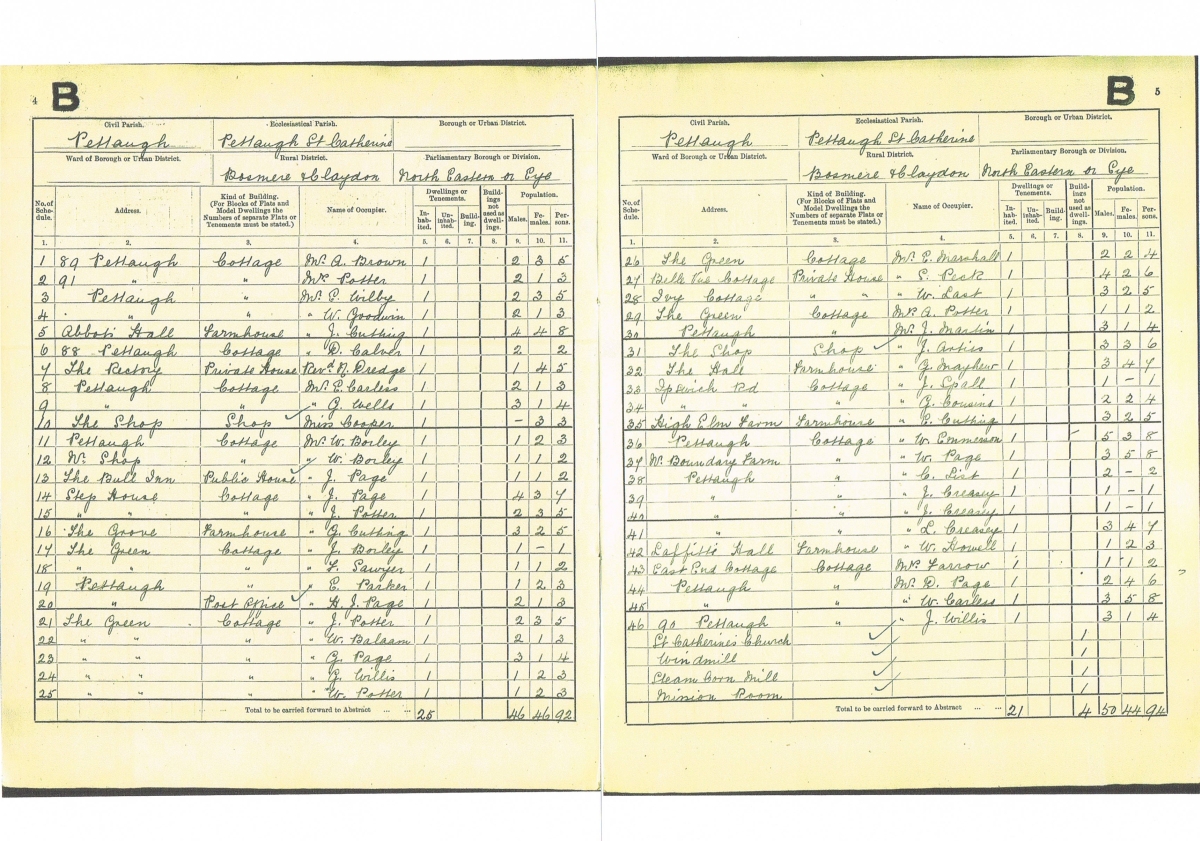 4 B
Civil Parish. Ecclesiastical Parish. Borough or Urban District.
Pettaugh Pettaugh St Catherine
Ward of Borough or Urban District. Rural District. Parliamentary Borough or Division.
Bosmere & Claydon North Eastern or Eye
No. of Schedule. Address. Kind of Building. (For Blocks of Flats and Model Dwellings the Numbers of separate Flats or Tenements must be stated.) Name of Occupier. Dwellings or Tenements. Inhabited. Uninhabited. Building. Buildings not used as dwellings. Population. Males. Females. Persons.
1. 2. 3. 4. 5. 6. 7. 8. 9. 10. 11.
1 89 Pettaugh Cottage Mr A. Brown 1 2 3 5
2 91 " " Mr Potter 1 2 1 3
3 Pettaugh " Mr P. Wilby 1 2 3 5
4 " " " W. Goodwin 1 2 1 3
5 Abbots Hall Farmhouse " J. Cutting 1 4 4 8
6 88 Pettaugh Cottage " D. Calver 1 2 2
7 The Rectory Private House Revd N. Dredge 1 1 4 5
8 Pettaugh Cottage Mr E. Carless 1 2 1 3
9 " " " G. Wells 1 3 1 4
10 The Shop Shop Miss Cooper 1 - 3 3
11 Pettaugh Cottage Mr W. Borley 1 1 2 3
12 Nr Shop " " W. Borley 1 1 1 2
13 The Bull Inn Public House " J. Page 1 1 1 2
14 Step House Cottage " J. Page 1 4 3 7
15 " " " J. Potter 1 2 3 5
16 The Grove Farmhouse " G. Cutting 1 3 2 5
17 The Green Cottage " J. Borley 1 1 - 1
18 " " " " F. Sawyer 1 1 1 2
19 Pettaugh " " E. Parker 1 1 2 3
20 " Post Office " H. J. Page 1 2 1 3
21 The Green Cottage " J. Potter 1 2 3 5
22 " " " W. Balaam 1 2 1 3
23 " " " G. Page 1 3 1 4
24 " " " G. Willis 1 1 2 3
25 " " " W. Potter 1 1 2 3
Total to be carried forward to Abstract ... ... 25 46 46 92
B 5
Civil Parish. Ecclesiastical Parish. Borough or Urban District.
Pettaugh Pettaugh St Catherine
Ward of Borough or Urban District. Rural District. Parliamentary Borough or Division.
Bosmere & Claydon North Eastern or Eye
No. of Schedule. Address. Kind of Building. (For Blocks of Flats and Model Dwellings the Numbers of separate Flats or Tenements must be stated.) Name of Occupier. Dwellings or Tenements. Inhabited. Uninhabited. Building. Buildings not used as dwellings. Population. Males. Females. Persons.
1. 2. 3. 4. 5. 6. 7. 8. 9. 10. 11.
26 The Green Cottage Mr E. Marshall 1 2 2 4
27 Belle Vue Cottage Private House " S. Peck 1 4 2 6
28 Ivy Cottage " " " W. Last 1 3 2 5
29 The Green Cottage Mr A. Potter 1 1 1 2
30 Pettaugh " Mr J. Martin 1 3 1 4
31 The Shop Shop " J. Artiss 1 3 3 6
32 The Hall Farmhouse " G. Mayhew 1 3 4 7
33 Ipswich Rd Cottage " J. Spall 1 1 - 1
34 " " " " G. Cousins 1 2 2 4
35 High Elm Farm Farmhouse " E. Cutting 1 3 2 5
36 Pettaugh Cottage " W. Emmerson 1 5 3 8
37 Nr Boundary Farm " " W. Page 1 3 5 8
38 Pettaugh " " C. List 1 2 - 2
39 " " " J. Creasey 1 1 - 1
40 " " " J. Creasey 1 1 - 1
41 " " " L. Creasey 1 3 4 7
42 Laffitts Hall Farmhouse " W. Howell 1 1 2 3
43 East End Cottage Cottage Mr Farrow 1 1 1 2
44 Pettaugh " Mr D. Page 1 2 4 6
45 " " " W. Carless 1 3 5 8
46 90 Pettaugh " " J. Willis 1 3 1 4
St Catherine's Church 1
Windmill 1
Steam Corn Mill 1
Mission Room 1
Total to be carried forward to Abstract ... ... 21 4 50 44 94